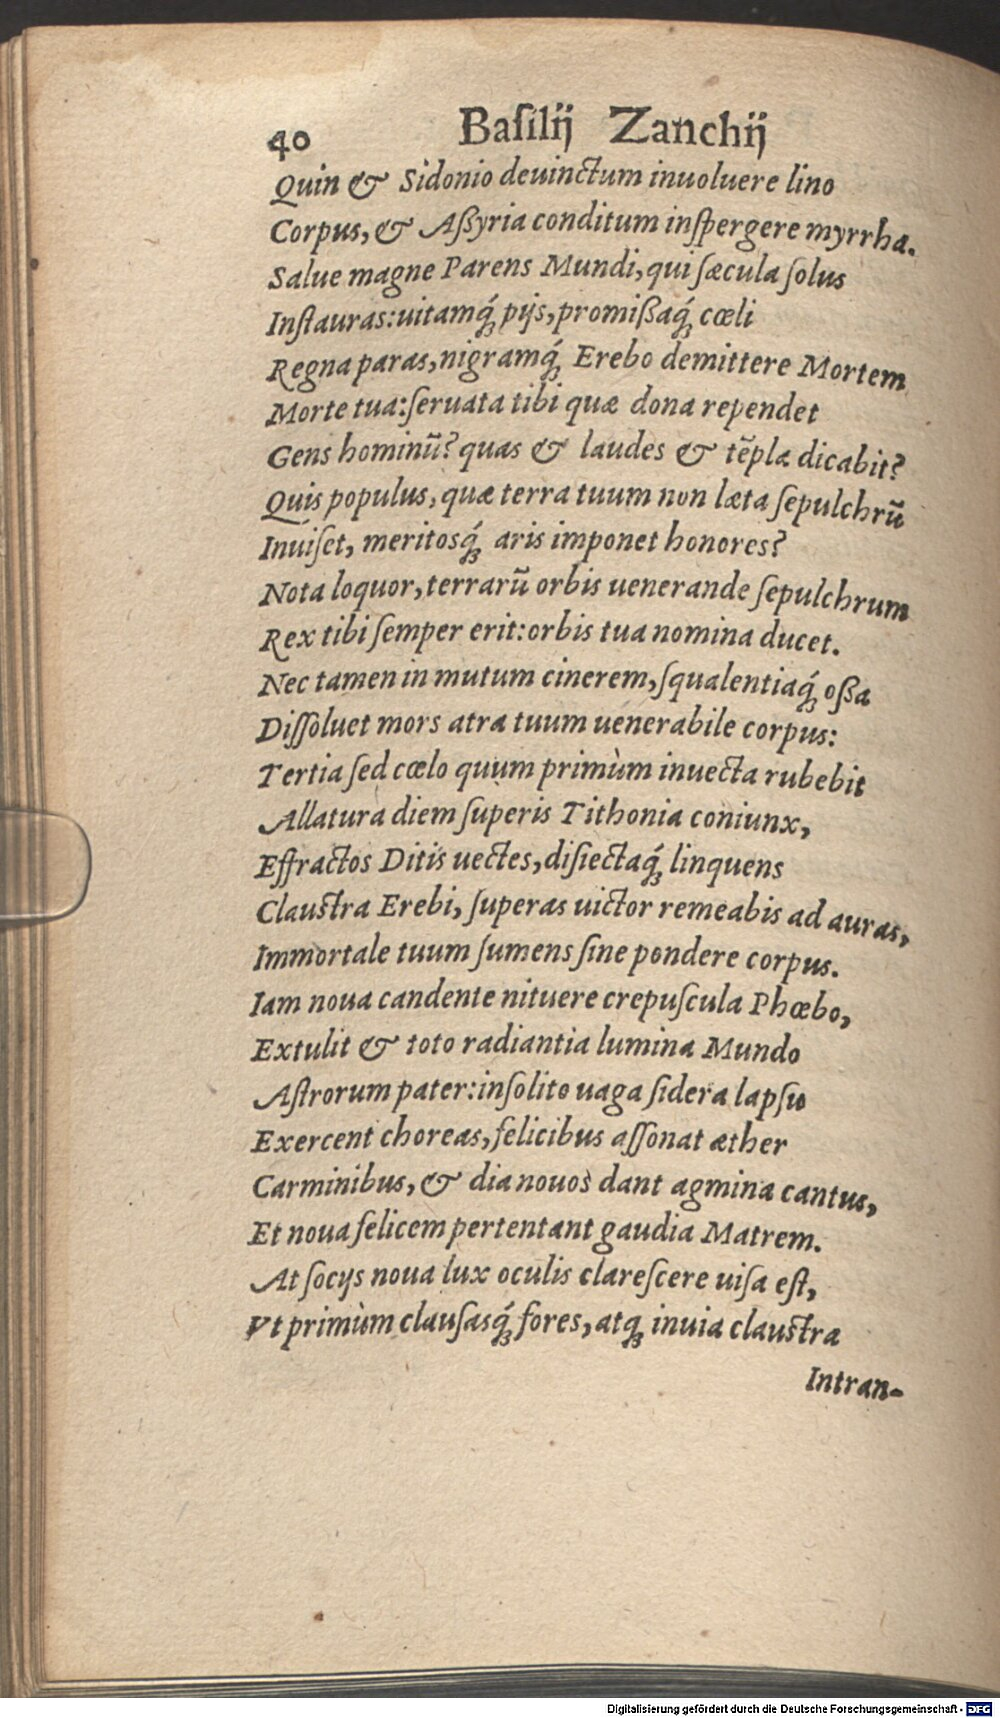 40 Baſilij Zanchij
Quin & Sidonio deuinctum inuoluere lino
Corpus, & Aßyria conditum inſpergere myrrha.
Salue magne Parens Mundi, qui ſæcula ſolus
Inſtauras: uitamq́; pijs, promißaq́; cœli
Regna paras, nigramq́; Erebo demittere Mortem
Morte tua: ſeruata tibi quæ dona rependet
Gens hominū? quas & laudes & tēpla dicabit?
Quis populus, quæ terra tuum non læta ſepulchrū
Inuiſet, meritosq́; aris imponet honores?
Nota loquor, terrarū orbis uenerande ſepulchrum
Rex tibi ſemper erit: orbis tua nomina ducet.
Nec tamen in mutum cinerem, ſqualentiaq́; oßa
Diſſoluet mors atra tuum uenerabile corpus:
Tertia ſed cœlo quum primùm inuecta rubebit
Allatura diem ſuperis Tithonia coniunx,
Effractos Ditis uectes, diſiectaq́; linquens
Clauſtra Erebi, ſuperas uictor remeabis ad auras,
Immortale tuum ſumens ſine pondere corpus.
Iam noua candente nituere crepuſcula Phœbo,
Extulit & toto radiantia lumina Mundo
Aſtrorum pater: inſolito uaga ſidera lapſu
Exercent choreas, felicibus aſſonat æther
Carminibus, & dia nouos dant agmina cantus,
Et noua felicem pertentant gaudia Matrem.
At ſocijs noua lux oculis clareſcere uiſa eſt,
Vt primùm clauſasq́; fores, atq; inuia clauſtra
Intran-
Digitalisierung gefördert durch die Deutsche Forschungsgemeinschaft - DFG